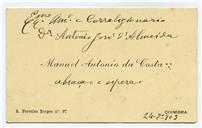 Exmo Amo e Correligionario
Dr Antonio José d'Almeida
Manuel Antonio da Costa
abraça e espera
R. Ferreira Borges nº. 97
COIMBRA
24-7-903